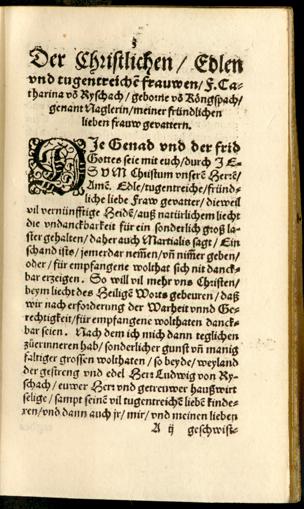 3
Der Christlichen / Edlen
vnd tugentreichē frauwen / F. Ca-
tharina vō Ryschach / geborne vō Köngspach /
genant Naglerin / meiner fründlichen
lieben frauw gevattern.
DIe Genad vnd der frid
Gottes seie mit euch / durch JE-
SVM Christum vnserē Herrē /
Amē. Edle / tugentreiche / fründ-
liche liebe Fraw gevatter / dieweil
vil vernünfftige Heidē / auß natürlichem liecht
die vndanckbarkeit für ein sonderlich groß la-
ster gehalten / daher auch Martialis sagt / Ein
schand ists / jemerdar nemen / vñ nim̄er geben /
oder / für empfangene wolthat sich nit danck-
bar erzeigen. So will vil mehr vns Christen /
beym liecht des Heiligē Worts gebeuren / daß
wir nach erforderung der Warheit vnnd Ge-
rechtigkeit / für empfangene wolthaten danck-
bar seien. Nach dem ich mich dann teglichen
züerinneren hab / sonderlicher gunst vñ manig
faltiger grossen wolthaten / so beyde / weyland
der gestreng vnd edel Herr Ludwig von Ry-
schach / euwer Herr vnd getreuwer haußwirt
selige / sampt seinē vil tugentreichē liebē kinde-
ren / vnd dann auch jr / mir / vnd meinen lieben
A ij geschwist-